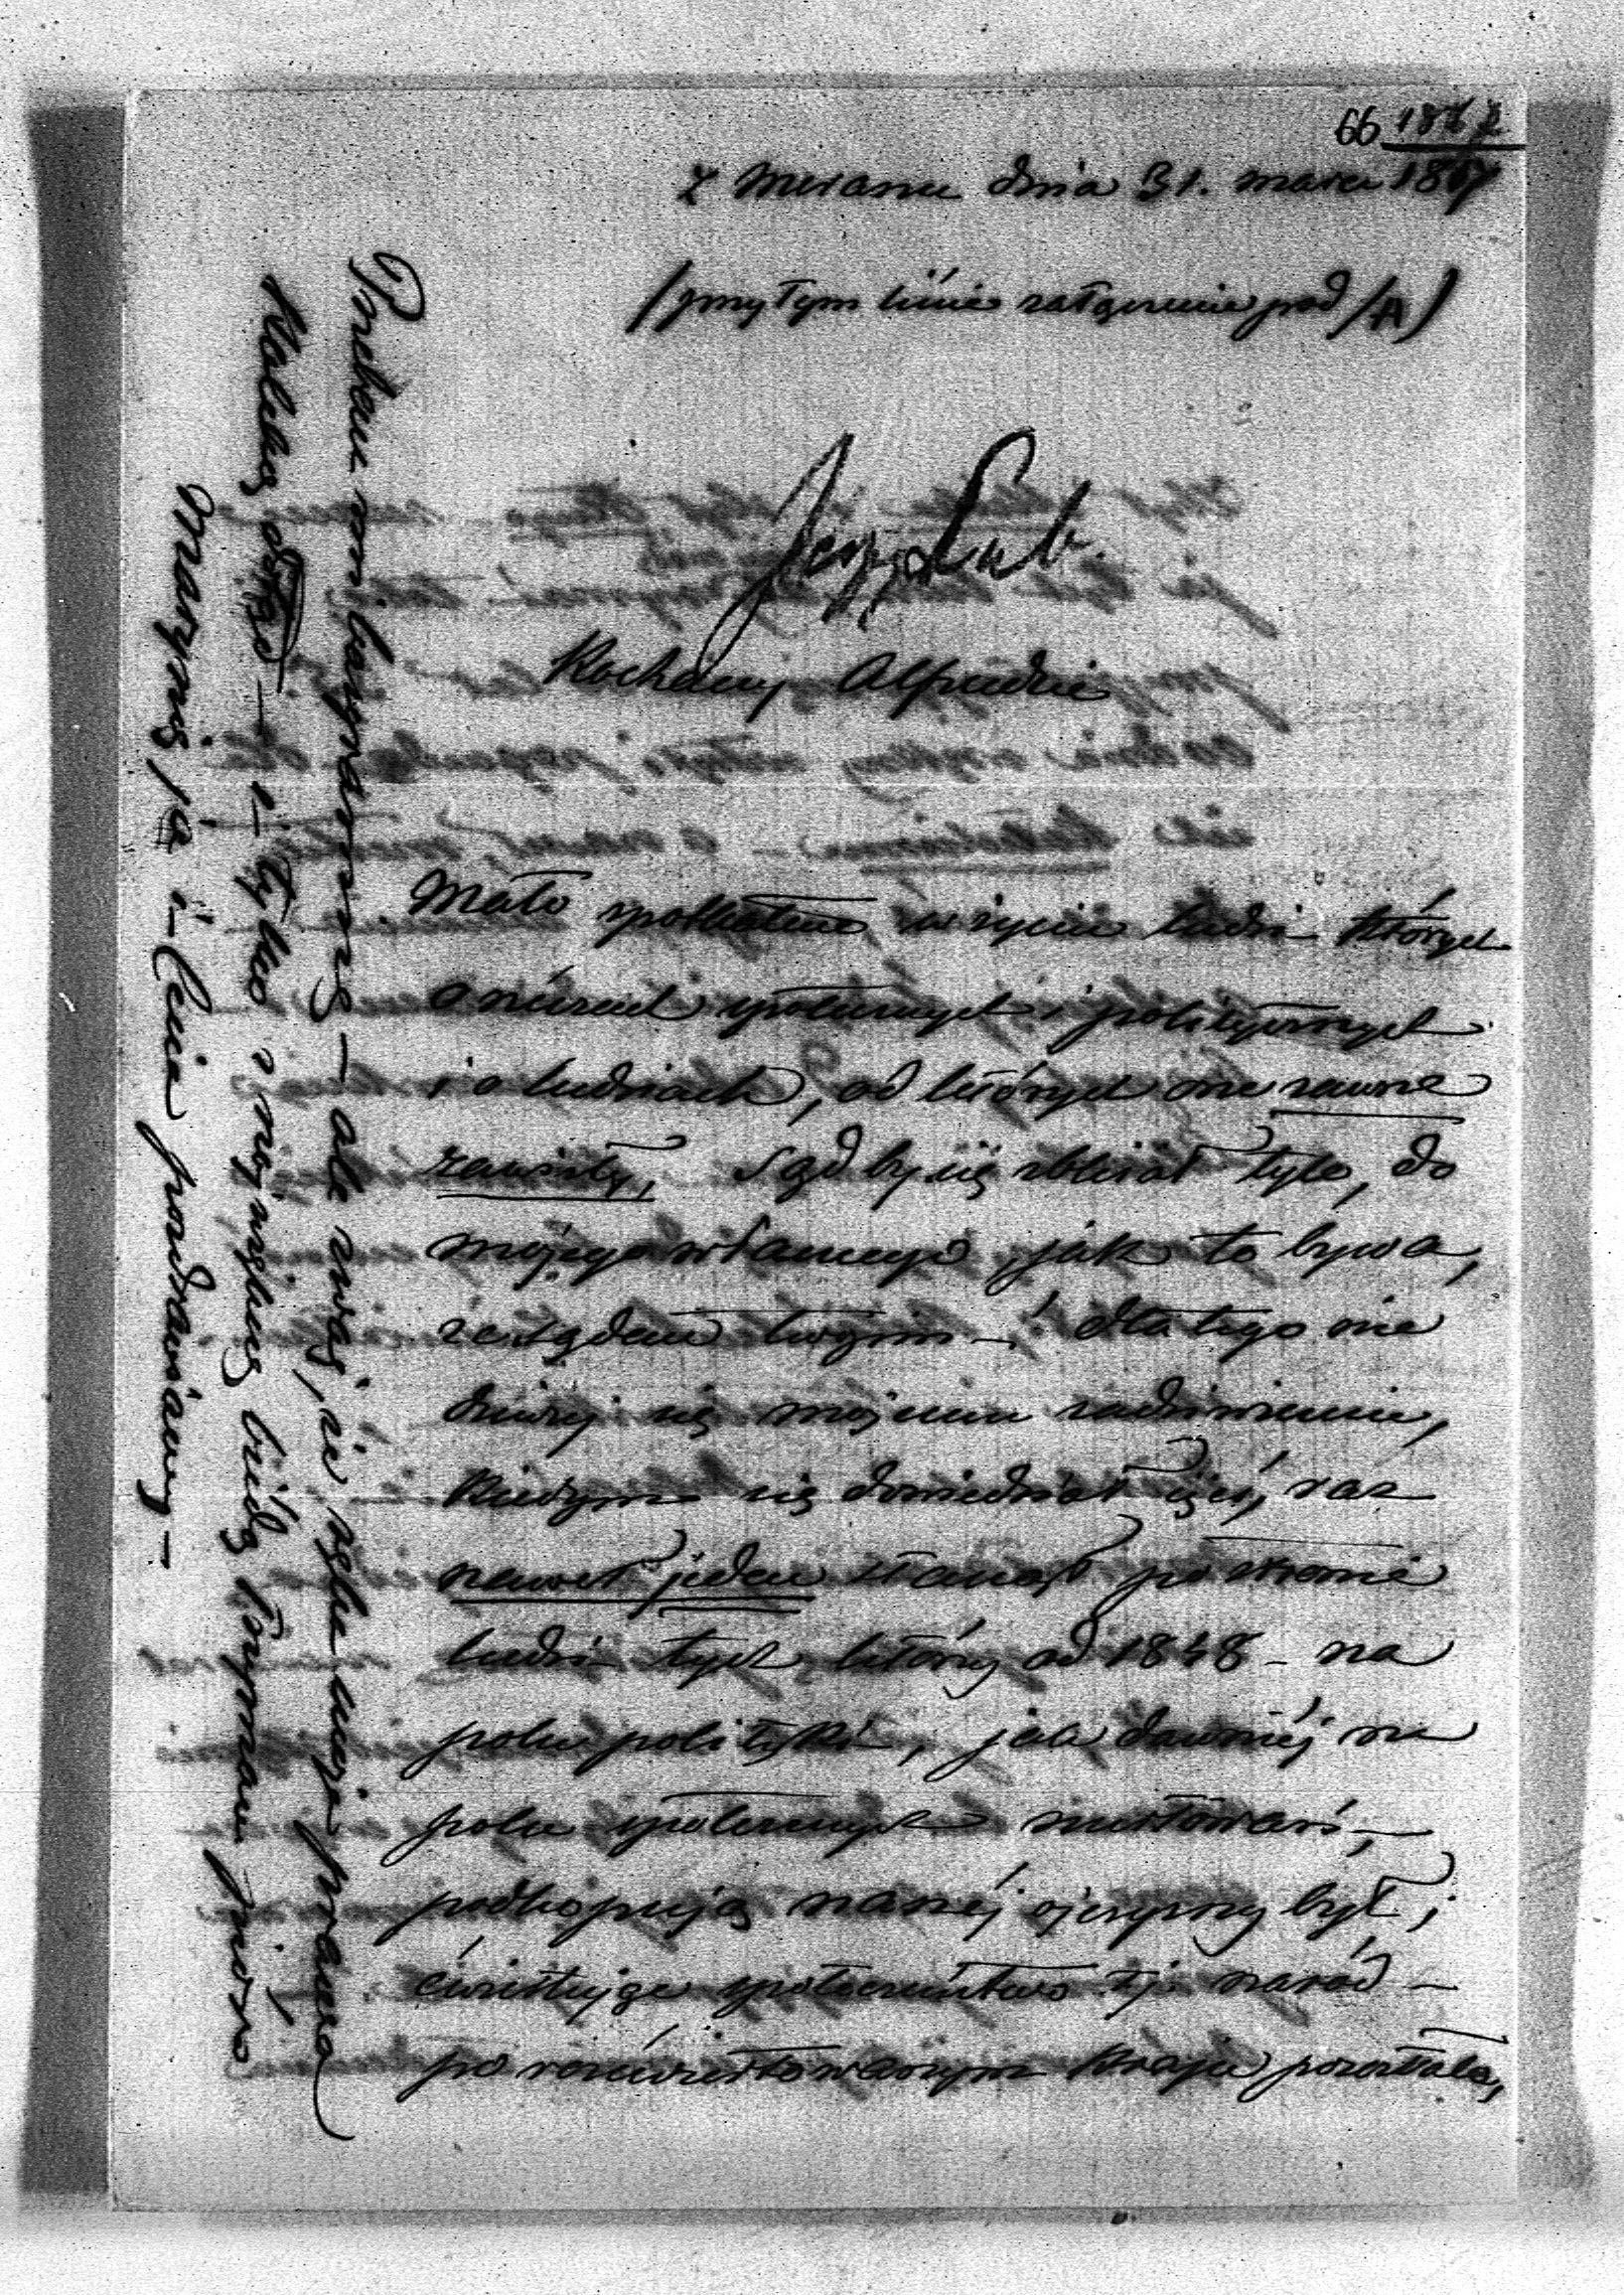 66 1867
z Meranu dnia 31. marca 1867
(przy tym liście załączenie pod /A)
Jerzy Lub.
Kochany Alfredzie
Mało spotkałem w życiu ludzi których
o rzeczach społecznych i politycznych
i o ludziach, od których one zawsze
zawisły, sąd by się zbliżał tyle, do
mojego własnego, jak to bywa,
ze sądem twoym –! dla tego nie
dziwuj się mojemu zadziwieniu,
kiedym się dowiedział żeś, raz
nawet jeden stanął po stronie
ludzi tych, którzy od 1848 – na
polu polityki, jak dawniej na
polu społecznych
podkopują naszéj ojczyzny byt;
społeczeństwo tj. naród –
po rozćwiertowanym kraju pozostałe,
Przebacz – ale zważ, że ręka moja prawa
– i tylko z największą biedą trzymam pióro
Marynię ja i Lecia pozdrawiamy –